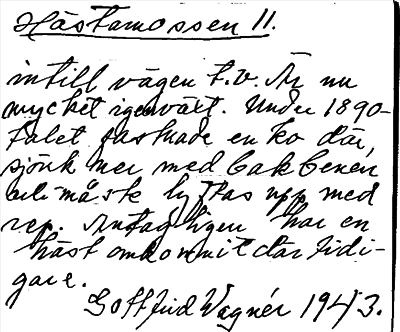 Hästamossen 11.
intill vägen t.v. Är nu
mycket igenväxt. Under 1890-
talet fastnade en ko där,
sjönk ner med bakbenen
och måste lyftas upp med
rep. Antagligen har en
häst omkommit där tidi-
gare.
Gottfrid Wagnér 1943.